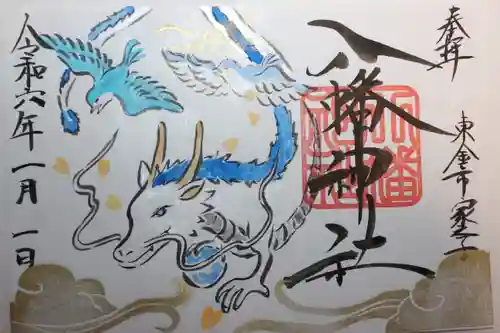 奉拝
東金市家之子
八幡神社
令和六年一月一日